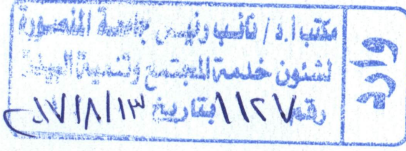 مكتب أ.د / نائب رئيس جامعة المنصورة
لشئون خدمة المجتمع وتنمية البيئة
رقم ١١٢٧ بتاريخ ٢٠١٧/٨/١٣
وارد